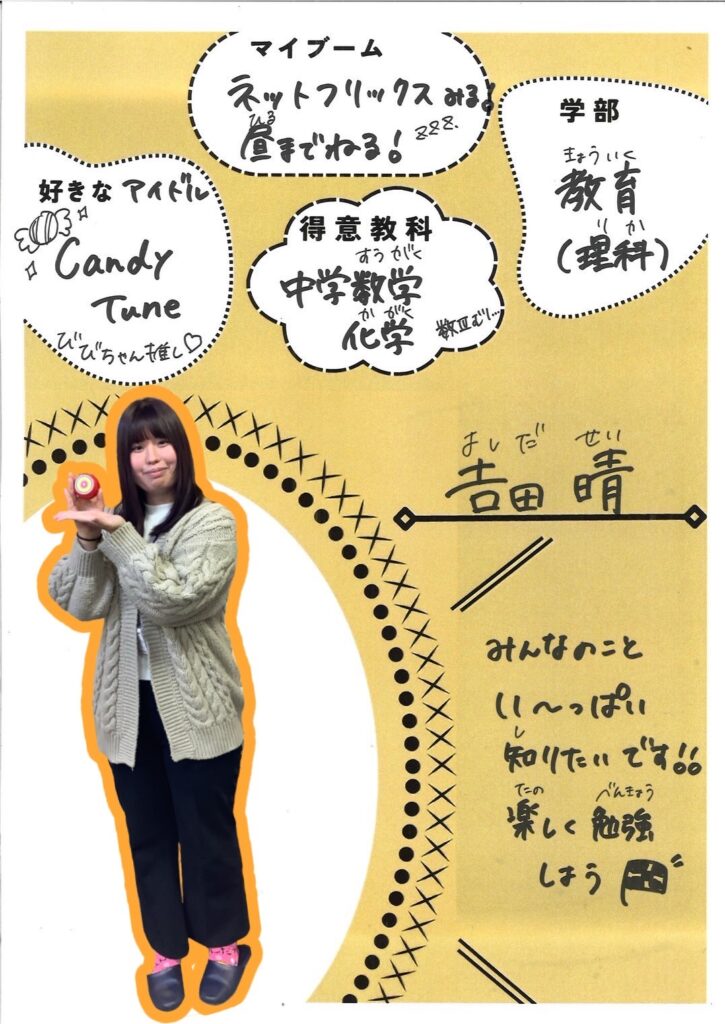 マイブーム
ネットフリックスみる!
ひる
昼までねる! zzz.
学部
きょういく
教育
りか
(理科)
好きな アイドル
Candy
Tune
びびちゃん推し♡
得意教科
すうがく
中学数学
かがく
化学 数Ⅲむり…
よしだ せい
吉田 晴
みんなのこと
い〜っぱい
し
知りたいです!!
たの べんきょう
楽しく勉強
しよう